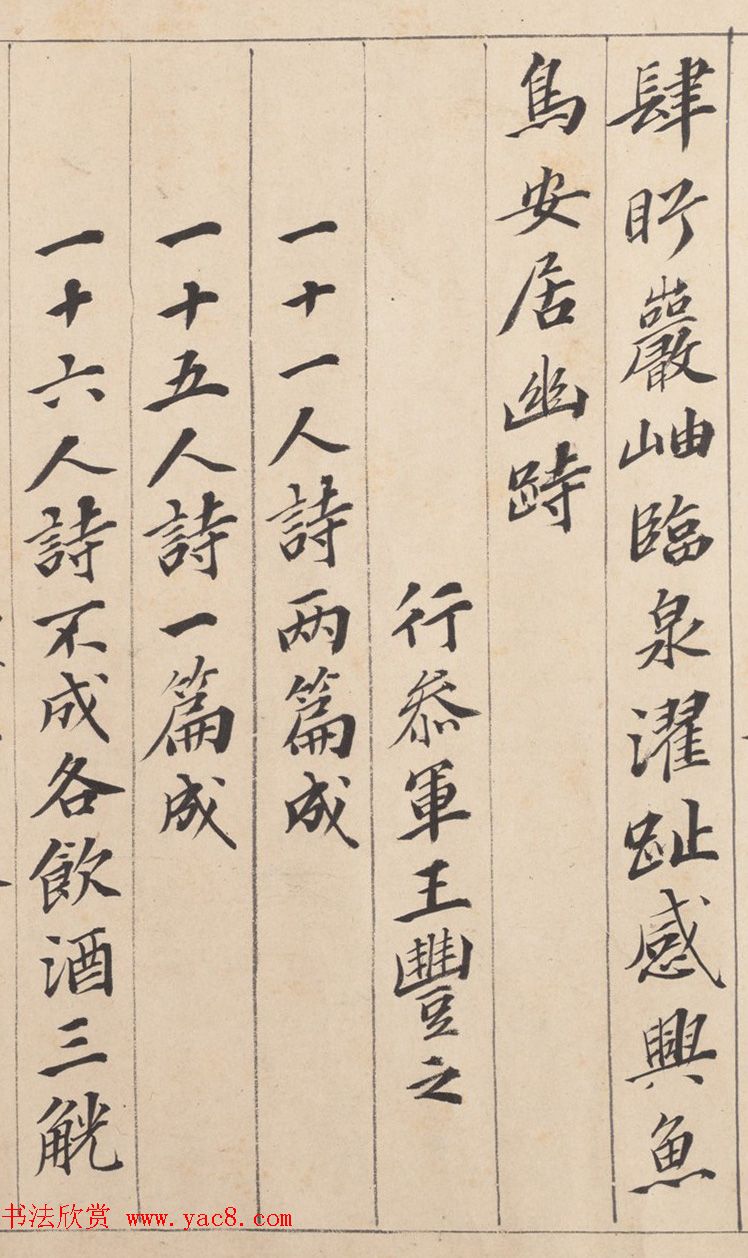 肆眄巖岫臨泉濯趾感興魚
鳥安居幽跱
行叅軍王豐之
一十一人詩兩篇成
一十五人詩一篇成
一十六人詩不成各飲酒三觥
书法欣赏 www.yac8.com